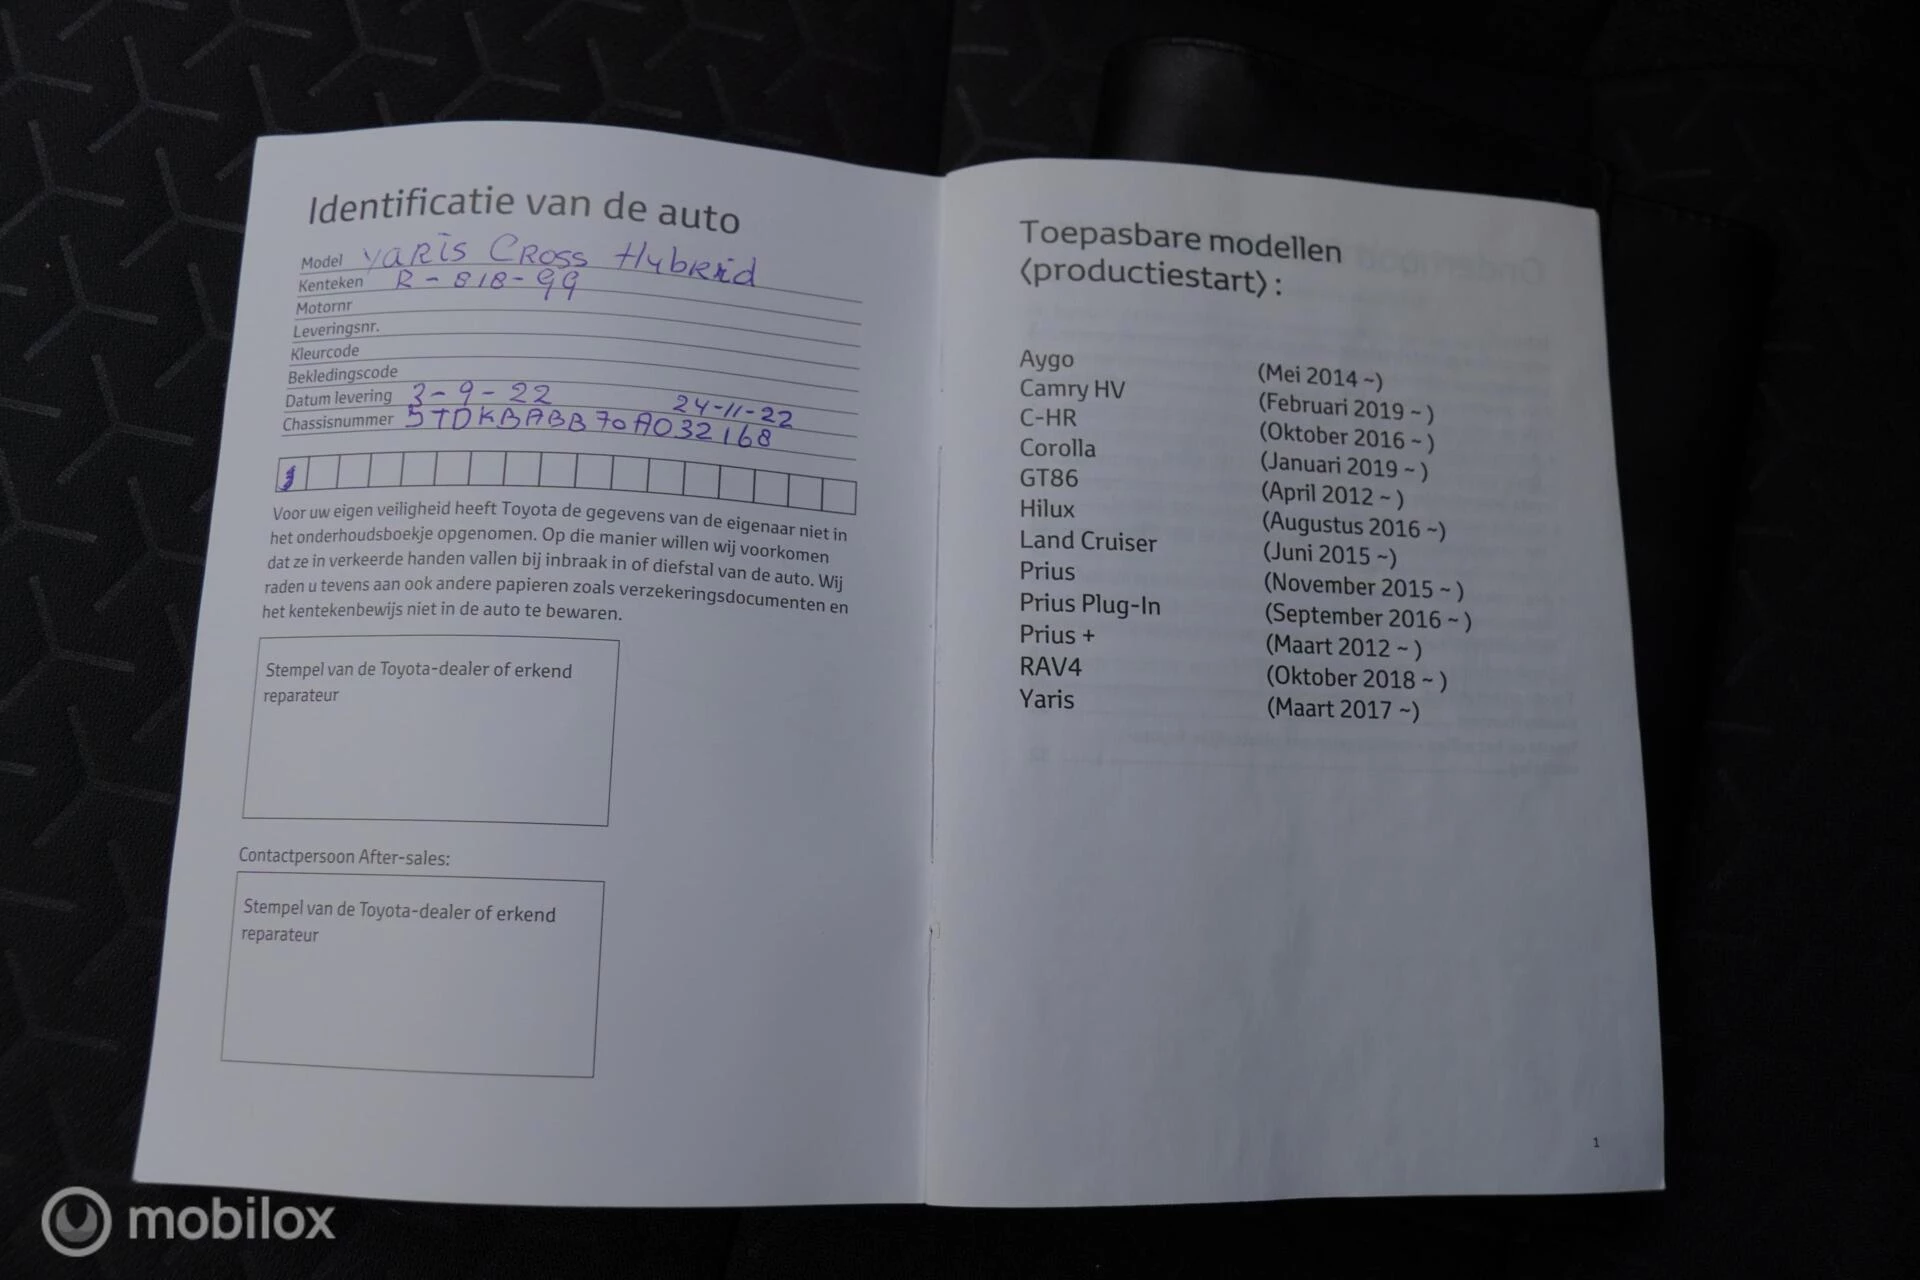 Identificatie van de auto
Model YARIS CROSS HYBRID
Kenteken R-818-99
Motornr
Leveringsnr.
Kleurcode
Bekledingscode
Datum levering 3-9-22 24-11-22
Chassisnummer STDKBABB70A032168
Voor uw eigen veiligheid heeft Toyota de gegevens van de eigenaar niet in
het onderhoudsboekje opgenomen. Op die manier willen wij voorkomen
dat ze in verkeerde handen vallen bij inbraak in of diefstal van de auto. Wij
raden u tevens aan ook andere papieren zoals verzekeringsdocumenten en
het kentekenbewijs niet in de auto te bewaren.
Stempel van de Toyota-dealer of erkend
reparateur
Contactpersoon After-sales:
Stempel van de Toyota-dealer of erkend
reparateur
Toepasbare modellen
⟨productiestart⟩ :
Aygo (Mei 2014 ~)
Camry HV (Februari 2019 ~ )
C-HR (Oktober 2016 ~ )
Corolla (Januari 2019 ~ )
GT86 (April 2012 ~ )
Hilux (Augustus 2016 ~)
Land Cruiser (Juni 2015 ~)
Prius (November 2015 ~ )
Prius Plug-In (September 2016 ~ )
Prius + (Maart 2012 ~ )
RAV4 (Oktober 2018 ~ )
Yaris (Maart 2017 ~)
1
mobilox